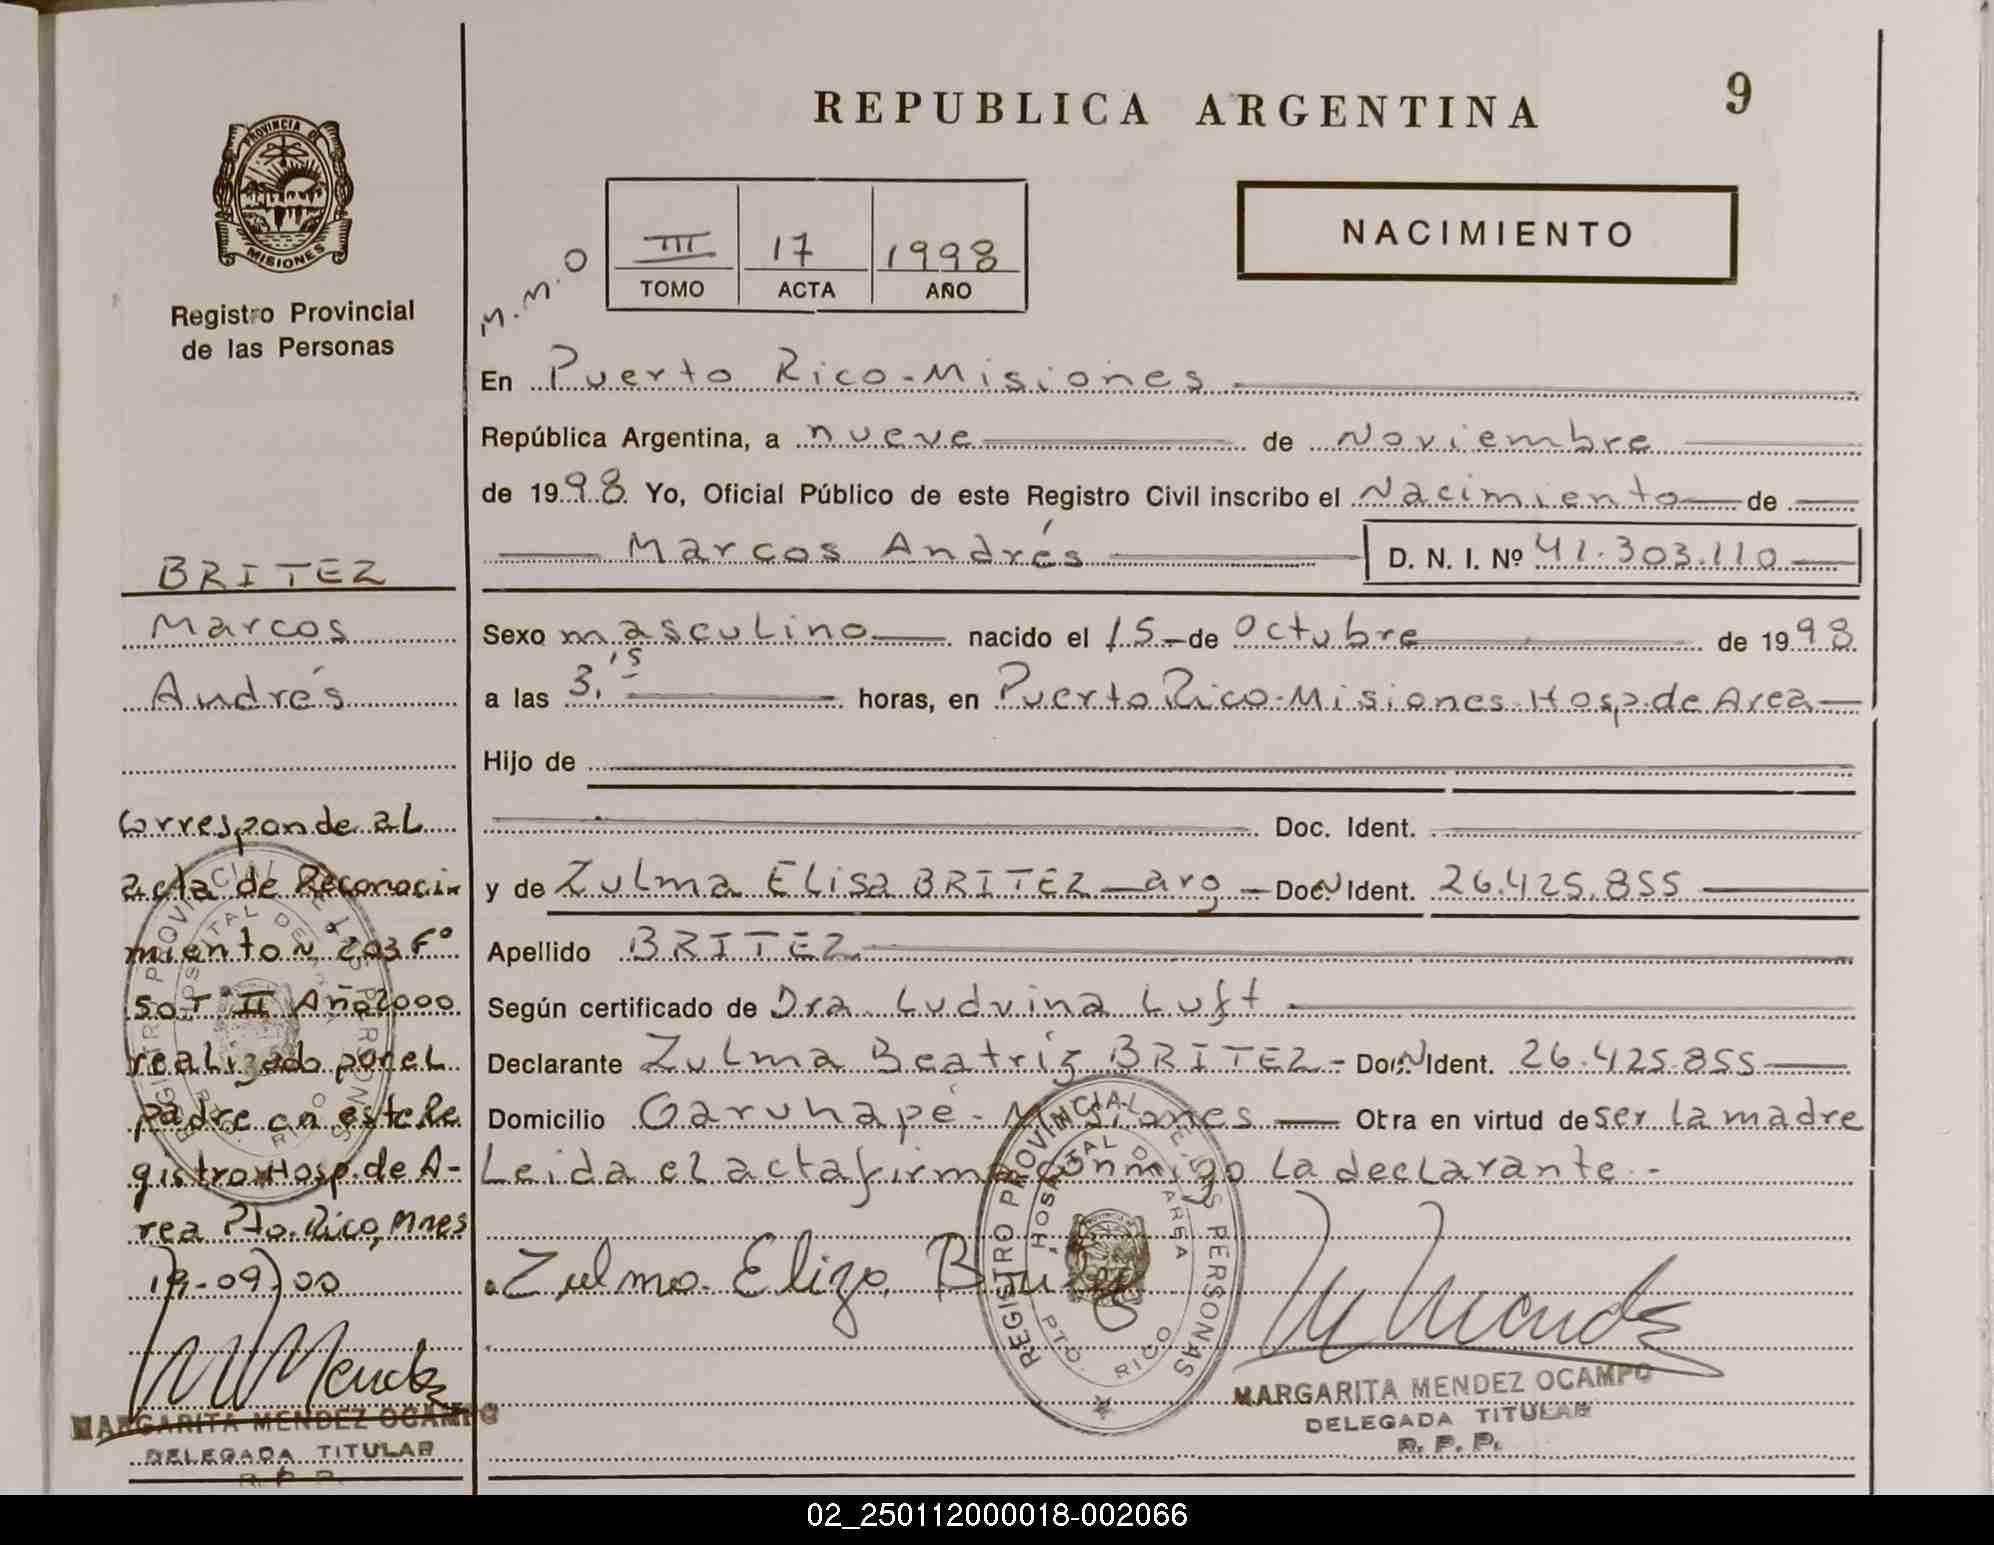 REPUBLICA ARGENTINA
9
PROVINCIA DE
MISIONES
Registro Provincial
de las Personas
M.M.O
III 17 1998
TOMO ACTA AÑO
NACIMIENTO
En Puerto Rico-Misiones
República Argentina, a nueve de Noviembre
de 1998 Yo, Oficial Público de este Registro Civil inscribo el Nacimiento de
Marcos Andrés D. N. I. Nº 41.303.110
Sexo masculino nacido el 15 de Octubre de 1998
a las 3,15 horas, en Puerto Rico-Misiones-Hosp. de Area
Hijo de
Doc. Ident.
y de Zulma Elisa BRITEZ - arg - Doc. N Ident. 26.425.855
Apellido BRITEZ
Según certificado de Dra. Ludvina Luft
Declarante Zulma Beatriz BRITEZ - Doc. N Ident. 26.425.855
Domicilio Garuhapé - Misiones Otra en virtud de ser la madre
Leida el acta firma conmigo la declarante.-
Zulma Eliza Britez
REGISTRO PROVINCIAL DE LAS PERSONAS
HOSPITAL DE AREA
PTO. RICO
M Mendez
MARGARITA MENDEZ OCAMPO
DELEGADA TITULAR
R. P. P.
BRITEZ
Marcos
Andrés
Corresponde al
acta de Reconoci-
miento N 203 Fº
50 T II Año 2000
realizado por el
padre en este Re
gistro Hosp. de A-
rea Pto. Rico, Mnes
19-09-00
M Mendez
MARGARITA MENDEZ OCAMPO
DELEGADA TITULAR
R. P. P.
REGISTRO PROVINCIAL DE LAS PERSONAS
HOSPITAL DE AREA
PTO. RICO
02_250112000018-002066